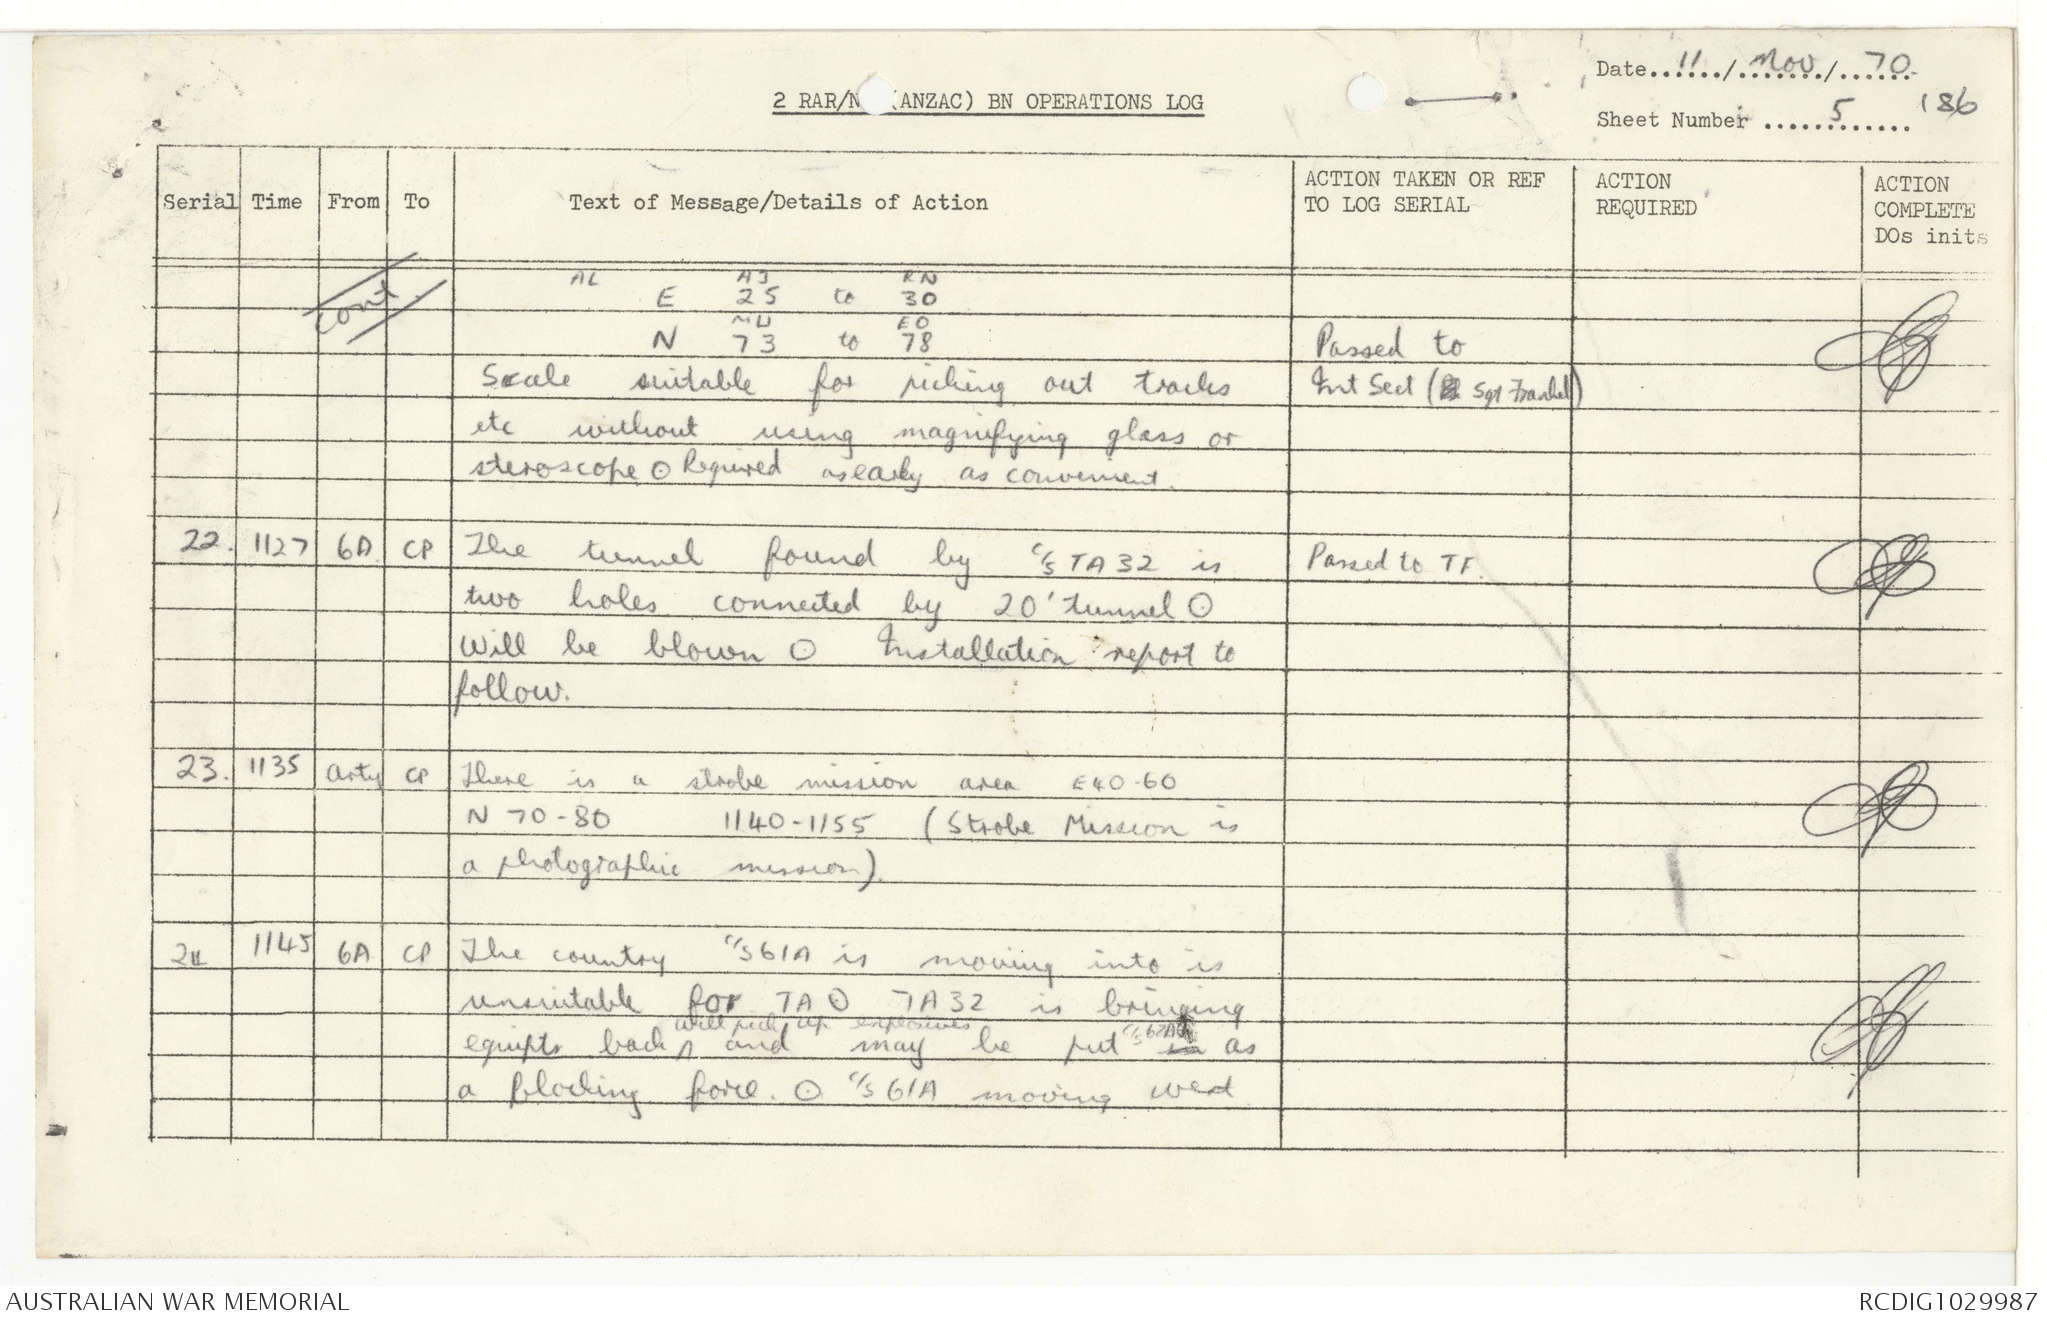 Date 11 / Nov / 70
2 RAR/N (ANZAC) BN OPERATIONS LOG
Sheet Number 5
186
Serial Time From To Text of Message/Details of Action ACTION TAKEN OR REF TO LOG SERIAL ACTION REQUIRED ACTION COMPLETE DOs inits
cont
AL AJ RN
E 25 to 30
MU EO
N 73 to 78 Passed to
Scale suitable for picking out tracks Int Sect ( Sgt )
etc without using magnifying glass or
steroscope ⊙ Required as early as convenient.
22. 1127 6A CP The tunnel found by c/s TA32 is Passed to TF.
two holes connected by 20' tunnel ⊙
Will be blown ⊙ Installation report to
follow.
23. 1135 Arty CP There is a strobe mission area E40-60
N 70-80 1140-1155 (Strobe Mission is
a photographic mission).
24 1145 6A CP The country c/s 61A is moving into is
unsuitable for TA ⊙ TA32 is bringing
will pick up explosives c/s 62A
equipts back and may be put as
a blocking force. ⊙ c/s 61A moving west
AUSTRALIAN WAR MEMORIAL RCDIG1029987